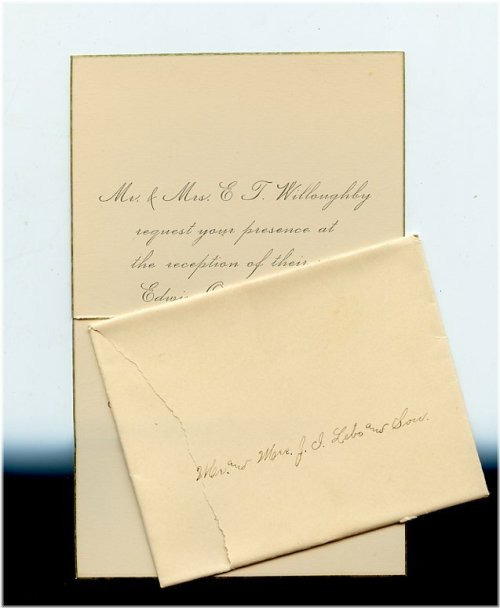 Mr. & Mrs. E T. Willoughby
request your presence at
the reception of their
Edwi
Mr. and Mrs. J. I. Lebo and Son.